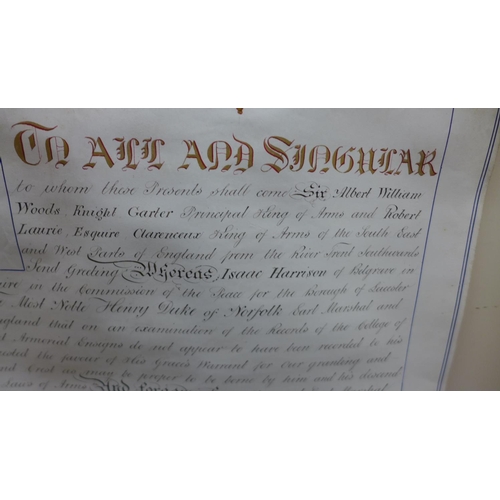 To All and Singular
to whom these Presents shall come Sir Albert William
Woods Knight Garter Principal King of Arms and Robert
Laurie, Esquire Clarenceux King of Arms of the South East
and West Parts of England from the River Trent Southwards
Send Greeting Whereas Isaac Harrison of Belgrave in
in the Commission of the Peace for the Borough of Leicester
Most Noble Henry Duke of Norfolk Earl Marshal and
that on an examination of the Records of the College of
Armorial Ensigns do not appear to have been recorded to his
the favour of His Grace's Warrant for Our granting and
Crest as may be proper to be borne by him and his
Laws of Arms And